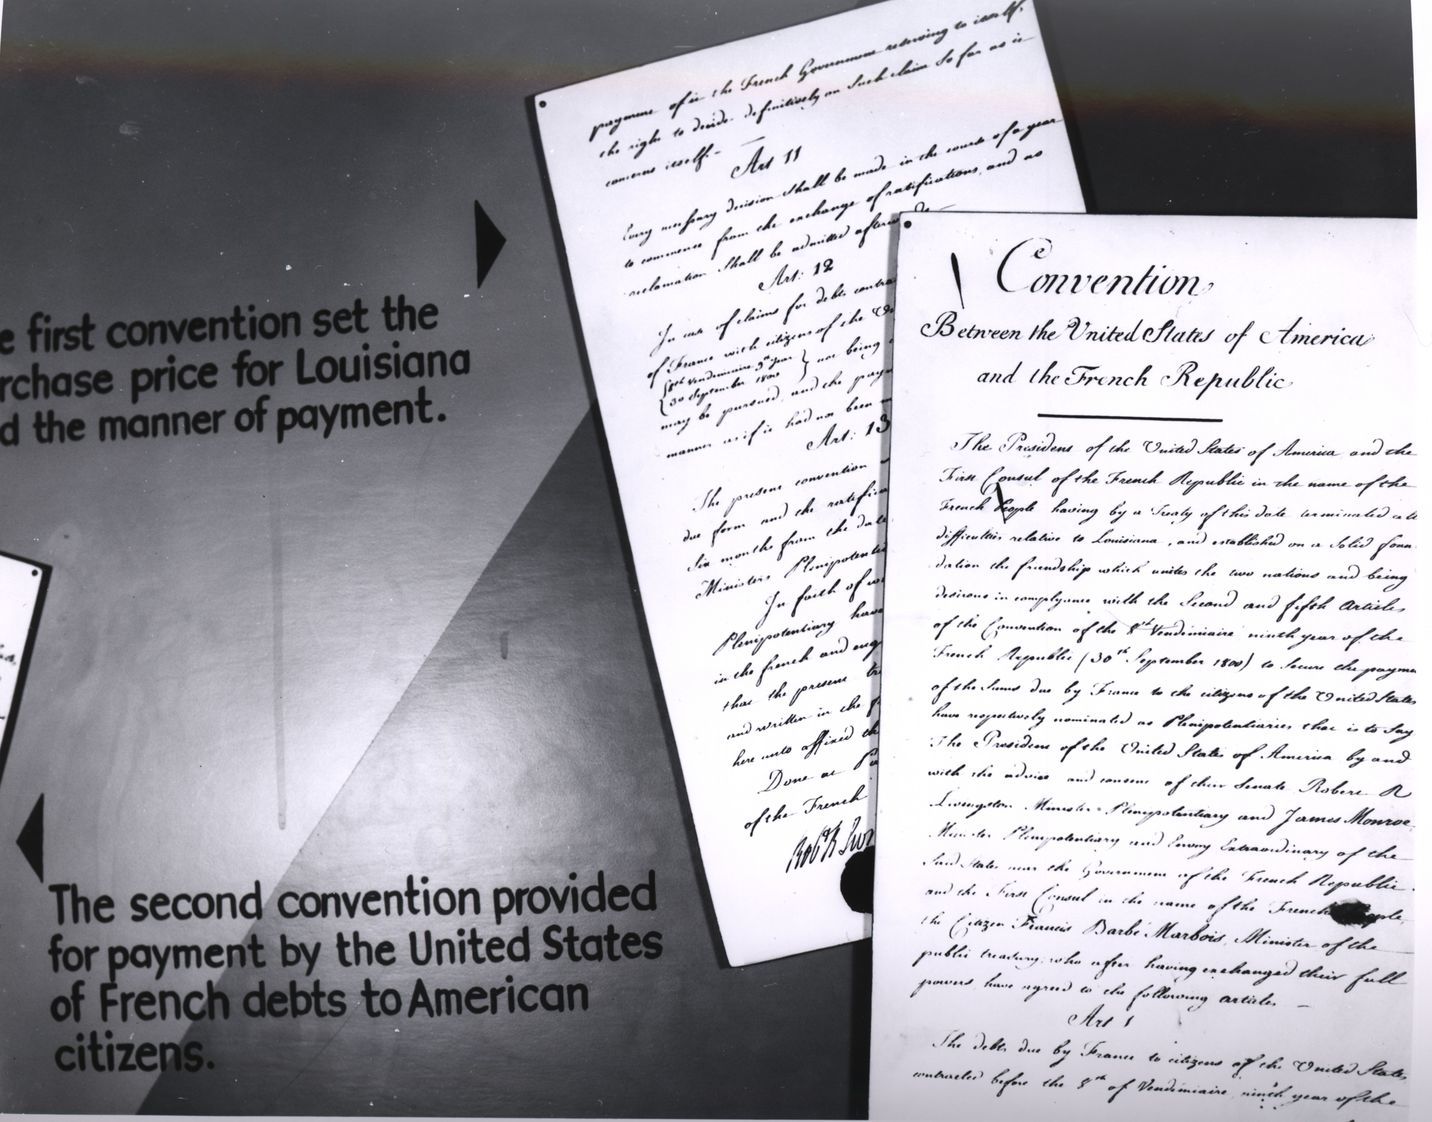 e first convention set the
rchase price for Louisiana
d the manner of payment.
The second convention provided
for payment by the United States
of French debts to American
citizens.
payment of it the French Government reserving to itself
the right to decide definitively on Such claim So far as it
concerns itself.-
Art 11
Every necessary decision Shall be made in the course of a year
to commence from the exchange of ratifications, and no
reclamation Shall be admitted afterwards
Art: 12
In case of claims for debts contra
of France with citizens of the
30 September 1800 not being
may be pursued, and the pay
manner as if it had not been
Art: 13
The present convention
due form and the ratifica
Six months from the date
Ministers Plenipotenti
In faith of w
Plenipotentiary have
in the french and eng
that the present tr
and written in the f
here unto affixed th
Done at Pa
of the French
Robt R Liv
Convention
Between the United States of America
and the French Republic
The President of the United States of America and the
First Consul of the French Republic in the name of the
French People having by a Treaty of this date terminated all
difficulties relative to Louisiana, and established on a Solid foun
dation the friendship which unites the two nations and being
desirous in compliance with the Second and fifth Articles
of the Convention of the 8th Vendémiaire ninth year of the
French Republic (30th September 1800) to Secure the payme
of the Sums due by France to the citizens of the United States
have respectively nominated as Plenipotentiaries that is to Say
The President of the United States of America by and
with the advice and consent of their Senate Robert R
Livingston Minister Plenipotentiary and James Monroe
Minister Plenipotentiary and Envoy Extraordinary of the
Said States near the Government of the French Republic
and the First Consul in the name of the French People
the Citizen Francis Barbé Marbois, Minister of the
public treasury; who after having exchanged their full
powers have agreed to the following articles. —
Art 1
The debts due by France to citizens of the United States
contracted before the 8th of Vendémiaire ninth year of the